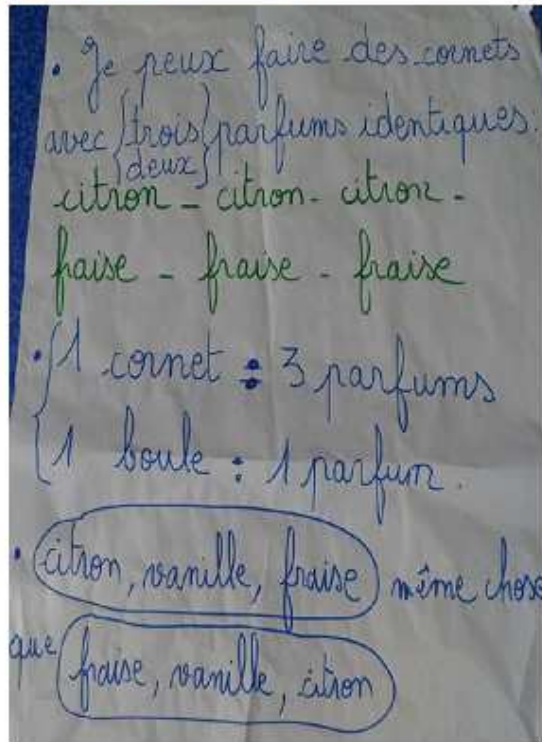 • Je peux faire des cornets
avec {trois} parfums identiques.
{deux}
citron - citron - citron -
fraise - fraise - fraise
• {1 cornet : 3 parfums
1 boule : 1 parfum.
• citron, vanille, fraise même chose
que fraise, vanille, citron